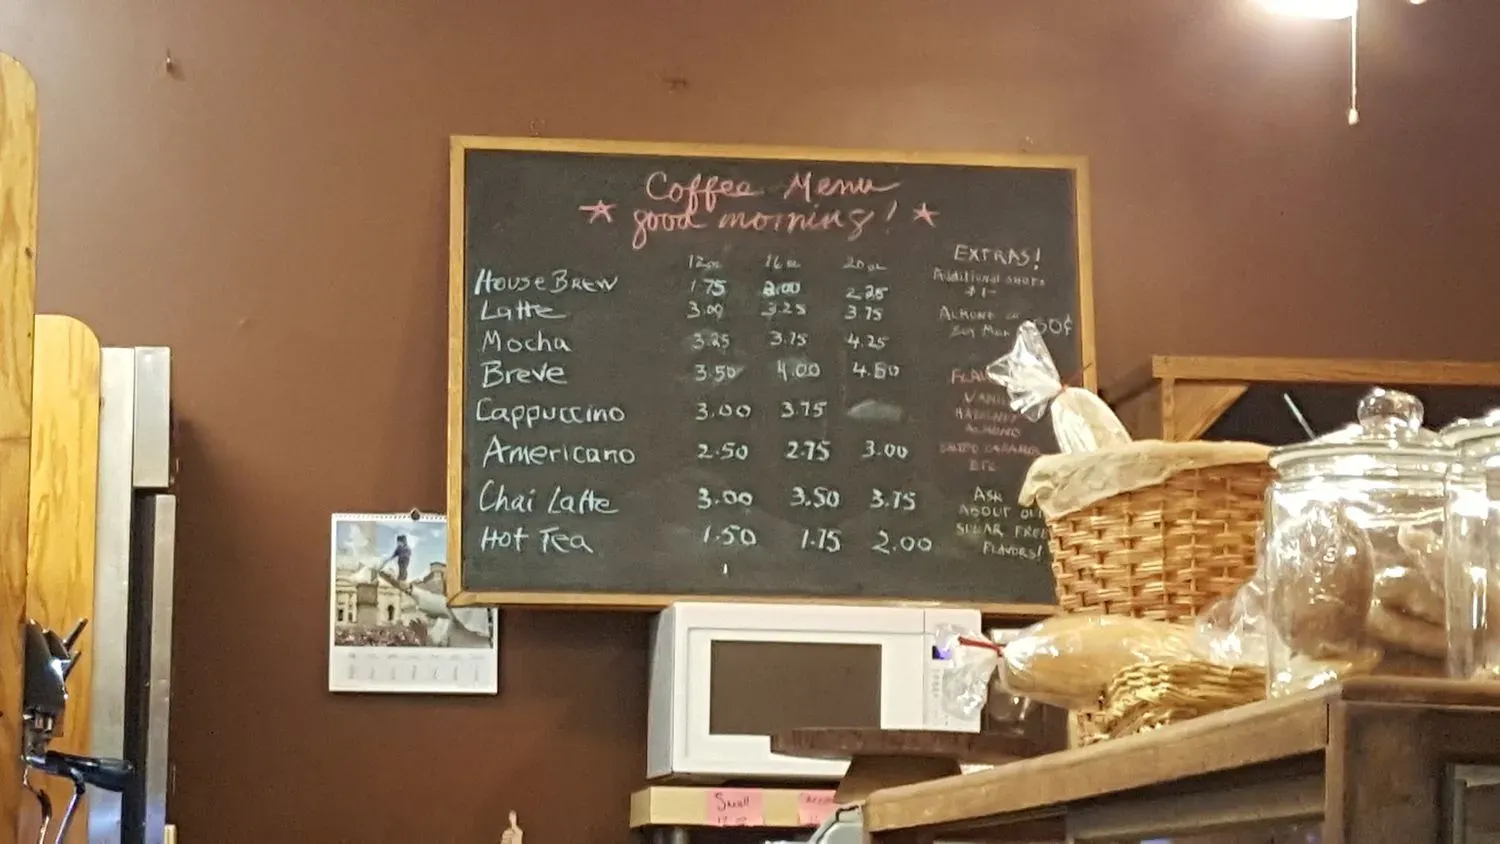 Coffee Menu
good morning!
12oz 16oz 20oz
House Brew 1.75 2.00 2.25
Latte 3.00 3.25 3.75
Mocha 3.25 3.75 4.25
Breve 3.50 4.00 4.50
Cappuccino 3.00 3.75
Americano 2.50 2.75 3.00
Chai Latte 3.00 3.50 3.75
Hot Tea 1.50 1.75 2.00
EXTRAS!
Additional shots
$1-
Almond or
Soy 50¢
Hazelnut
Almond
Salted Caramel
Etc
Ask
About
Sugar Free
Flavors!
Small